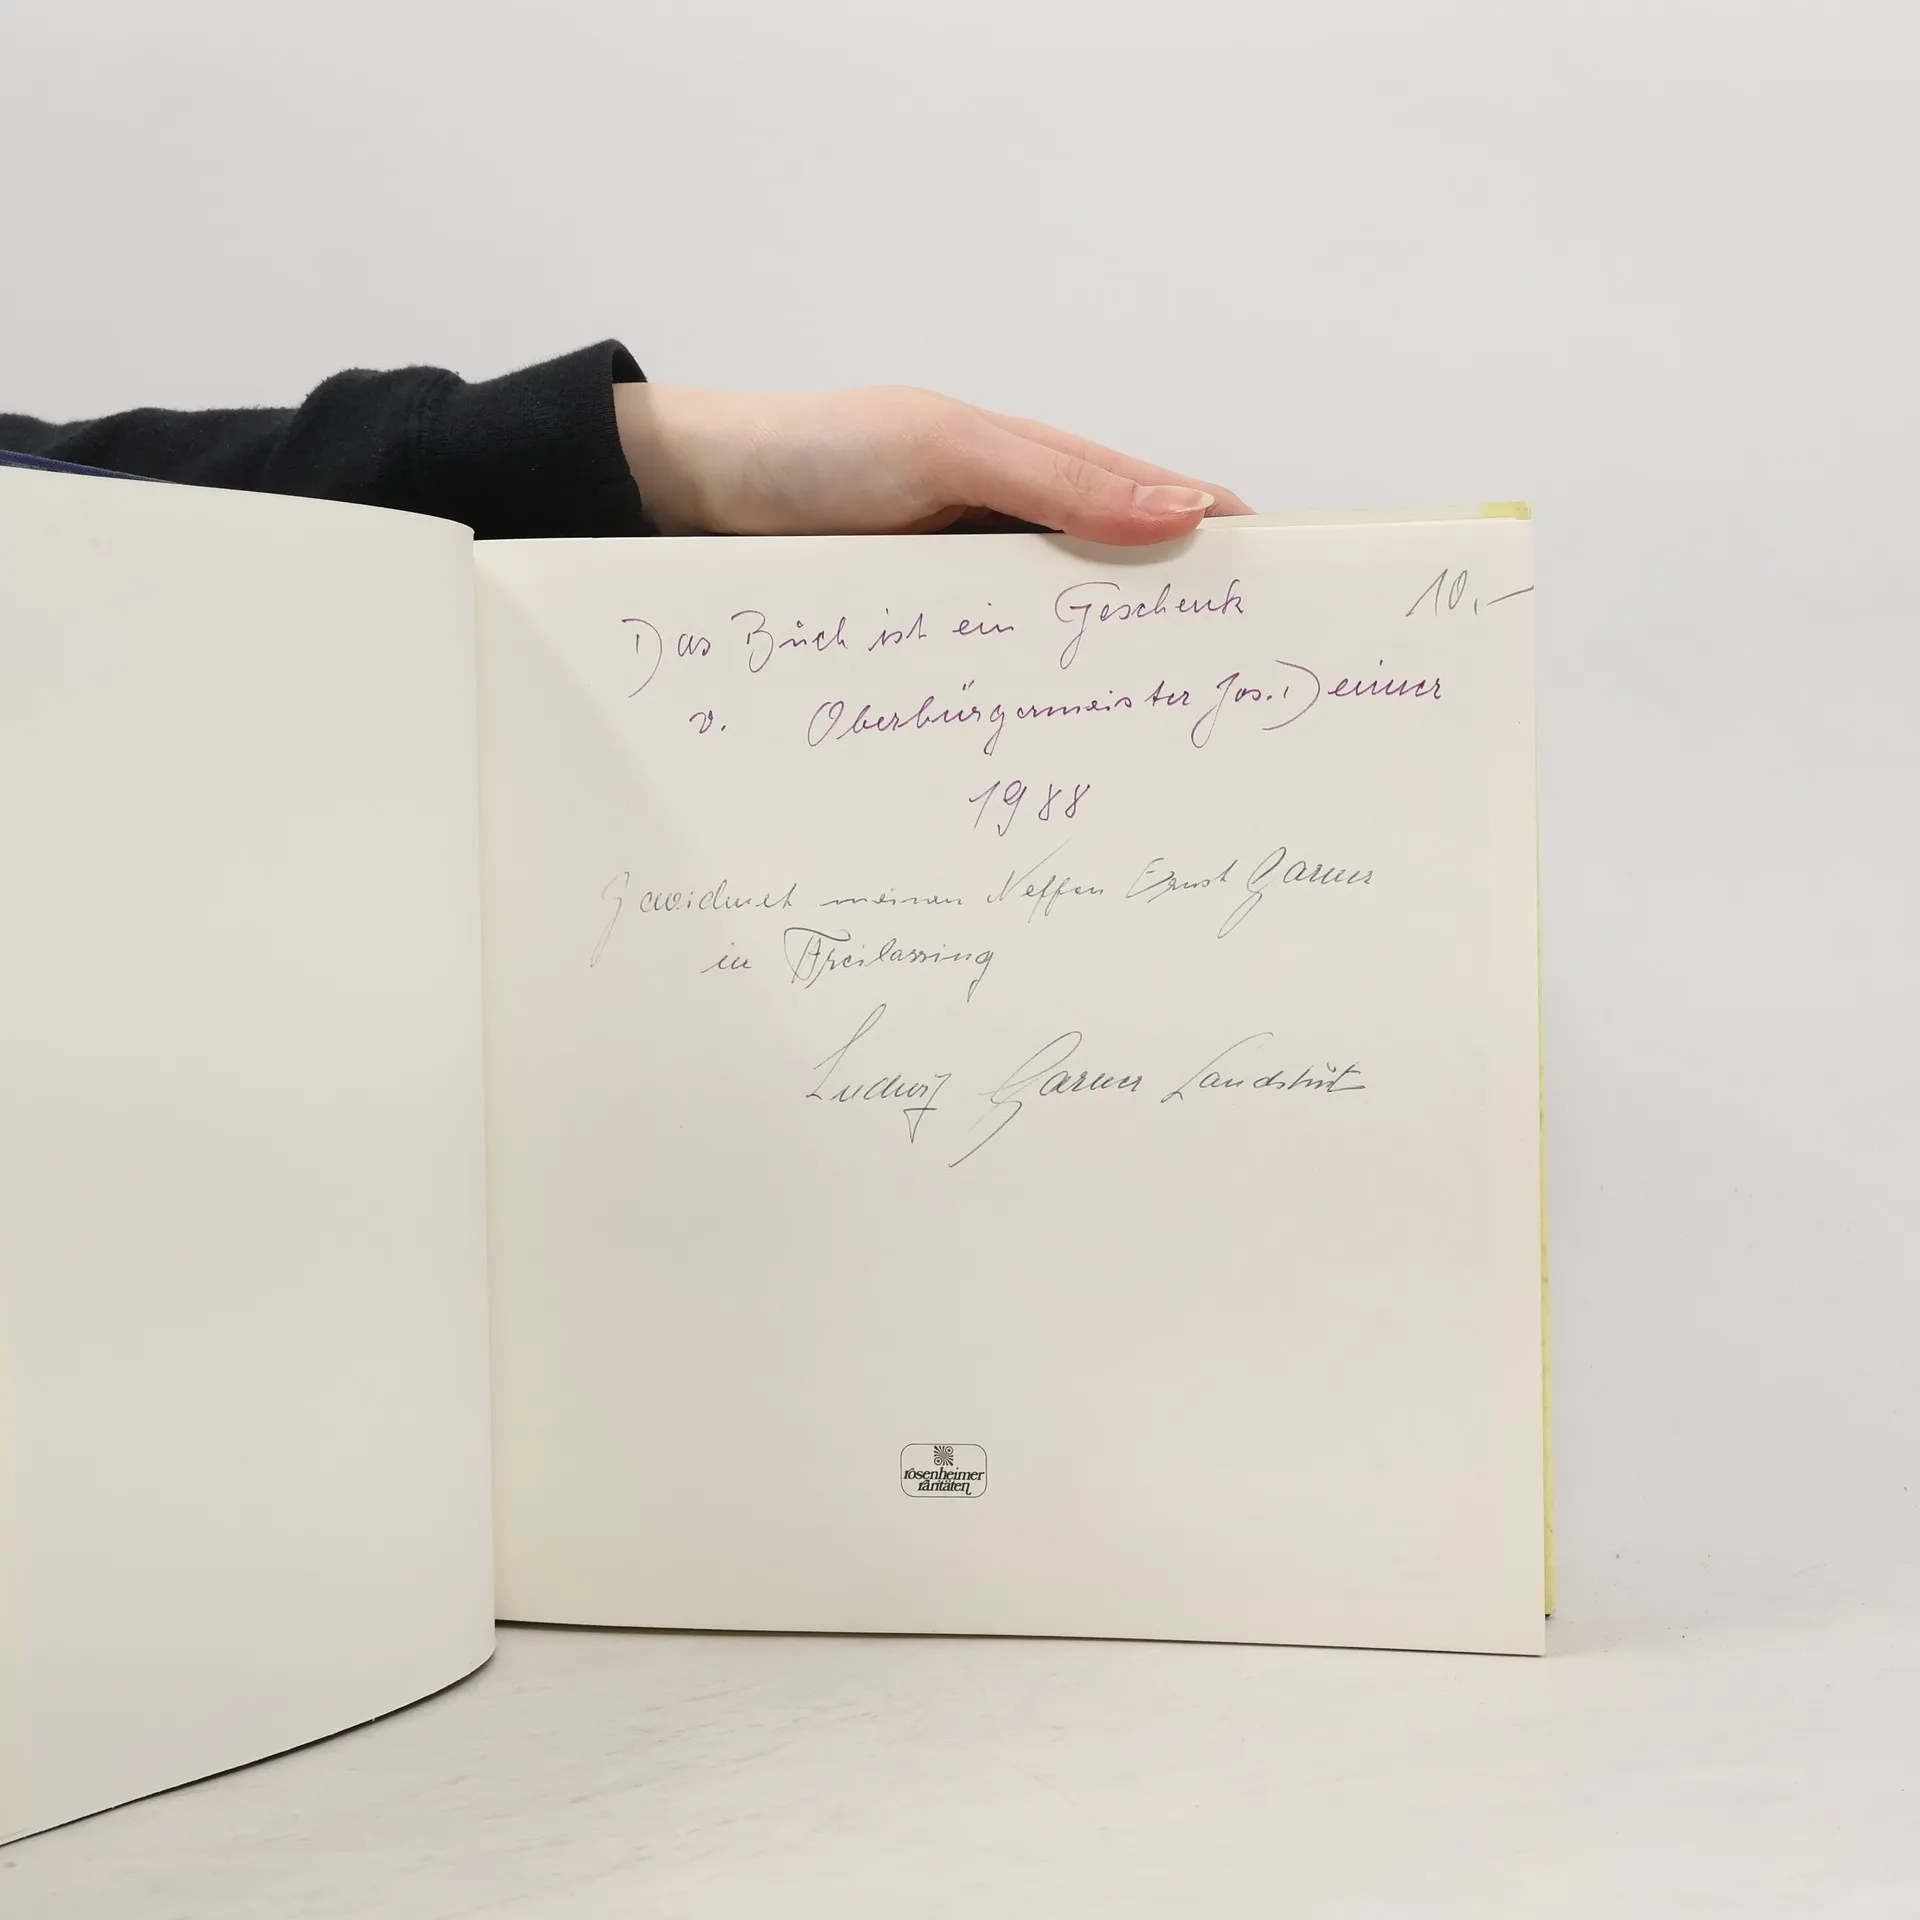 10,-
Das Buch ist ein Geschenk
v. Oberbürgermeister Jos. Deimer
1988
Gewidmet meinen Neffen Ernst Garner
in Freilassing
Ludwig Garner Landshut
rosenheimer
raritäten